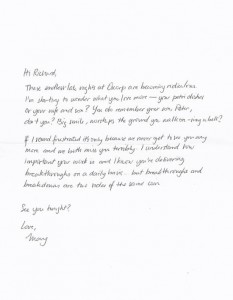 Hi Richard,
These endless late nights at Group are becoming ridiculous.
I'm starting to wonder what you love more — your petri dishes
or your wife and son? You do remember your son, Peter,
don't you? Big smile, worships the ground you walk on - ring a bell?
If I sound frustrated it's only because we never get to see you any
more and we both miss you terribly. I understand how
important your work is and I know you're delivering
breakthroughs on a daily basis... but breakthroughs and
breakdowns are two sides of the same coin.
See you tonight?
Love,
Mary